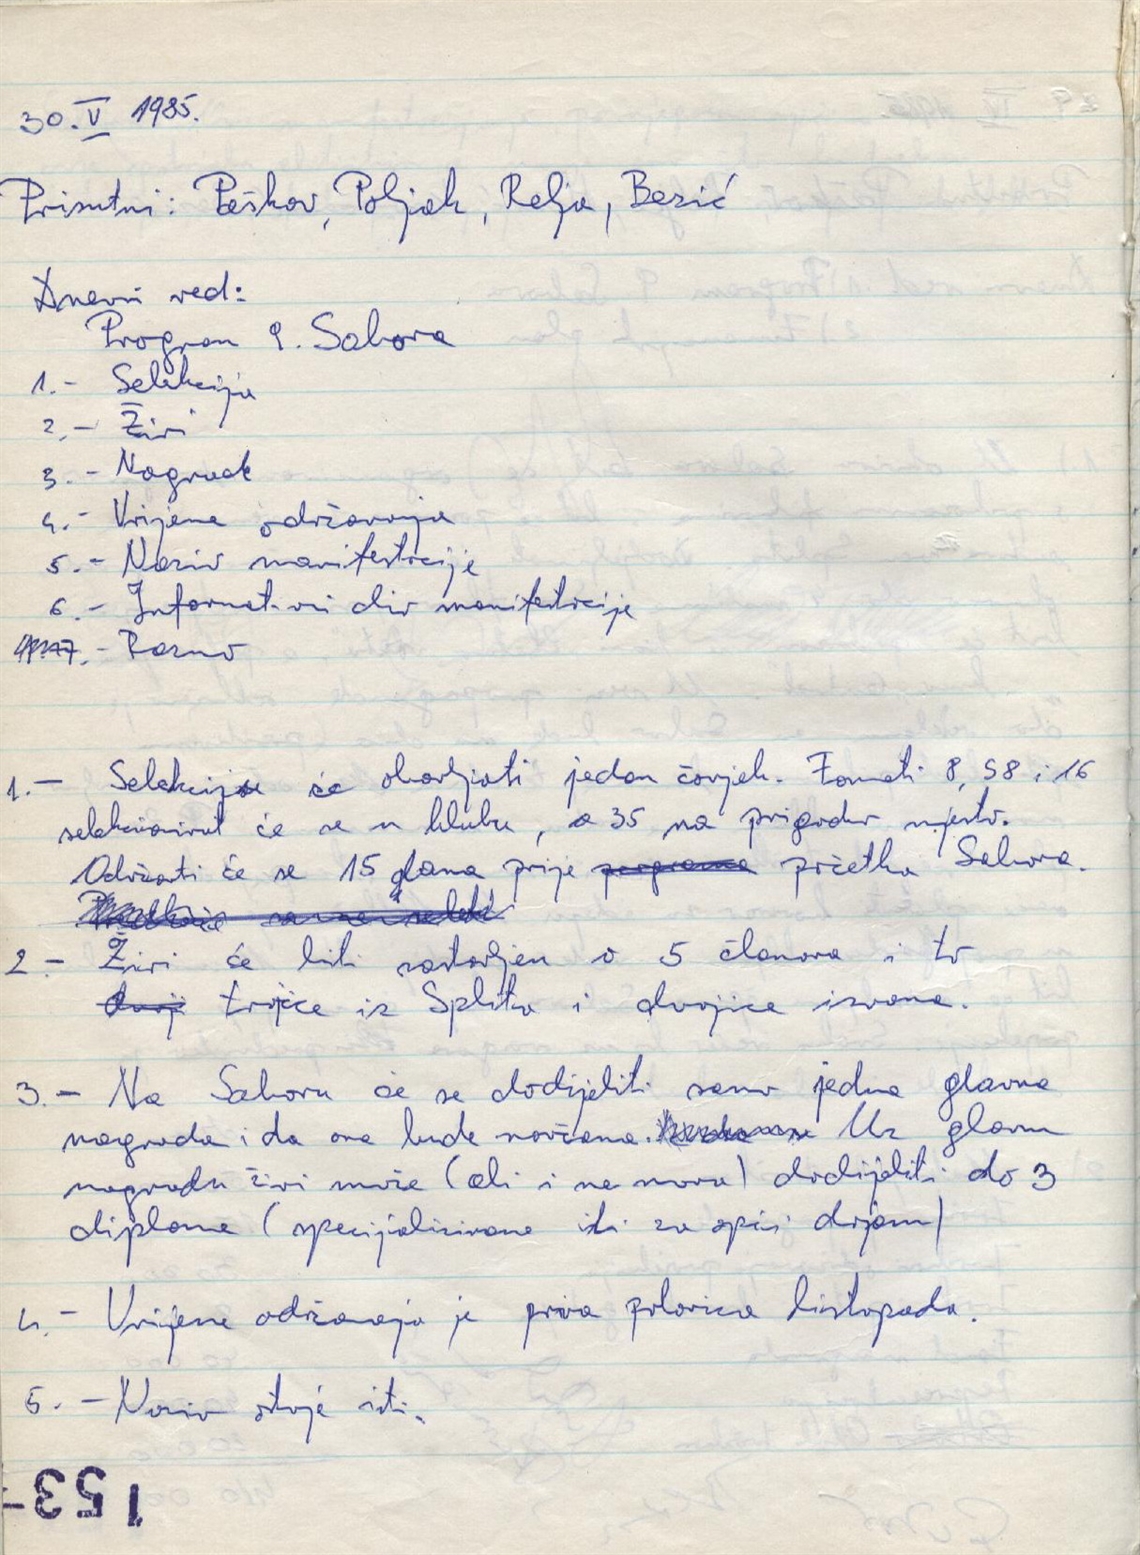 30. V 1985.
Prisutni: Peškov, Poljak, Relja, Bezić
Dnevni red:
Program 9. Sabora
1.- Selekcija
2.- Žiri
3.- Nagrade
4.- Vrijeme održavanja
5.- Naziv manifestacije
6.- Informativni dio manifestacije
7.- Razno
1.- Selekciju će obavljati jedan čovjek. Formati 8, S8 i 16
selekcionirat će se u klubu, a 35 na prigodno mjesto.
Održati će se 15 dana prije programa početka Sabora.
2.- Žiri će biti sastavljen o 5 članova i to
dvoj trojice iz Splita i dvojice izvana.
3.- Na Saboru će se dodijeliti samo jedna glavna
nagrada i da ona bude novčana. Uz glavnu
nagradu žiri može (ali i ne mora) dodijeliti do 3
diplome (specijalizirane ili za opći dojam)
4.- Vrijeme održavanja je prva polovica listopada.
5.- Naziv ostaje isti.
153-